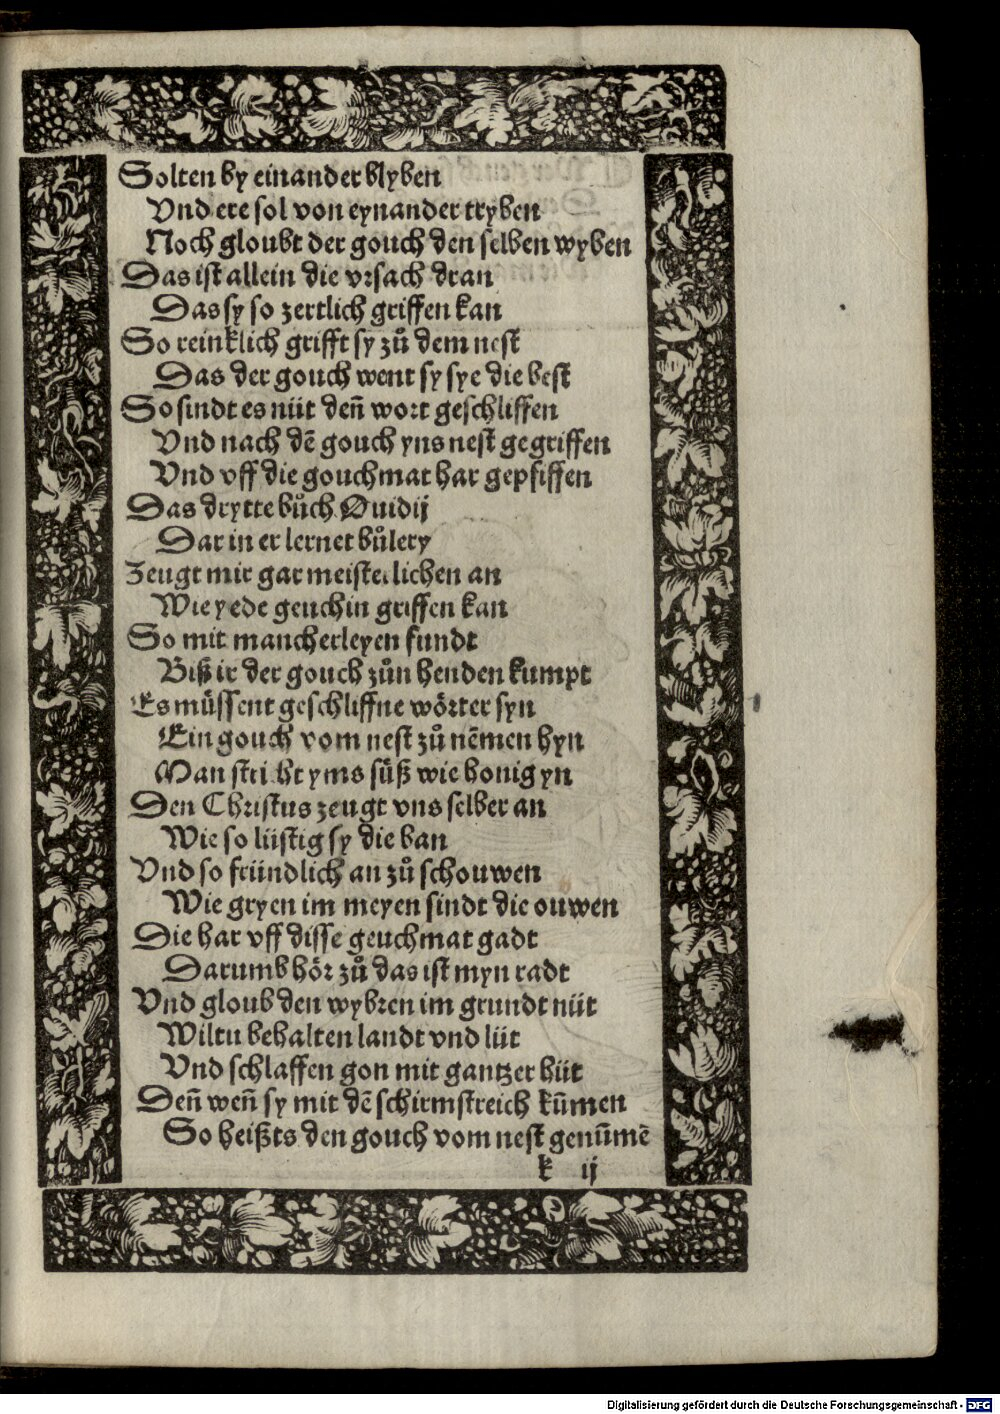 Solten by einander blyben
Vnd ere sol von eynander tryben
Noch gloubt der gouch den selben wyben
Das ist allein die vrsach dran
Das sy so zertlich griffen kan
So reinklich grifft sy zů dem nest
Das der gouch went sy sye die best
So sindt es nüt deñ wort geschliffen
Vnd nach dē gouch yns nest gegriffen
Vnd vff die gouchmat har gepfiffen
Das drytte bůch Ouidij
Dar in er lernet bůlery
Zeugt mir gar meisterlichen an
Wie yede geuchin griffen kan
So mit mancherleyen fundt
Biß ir der gouch zůn henden kumpt
Es müssent geschliffne wörter syn
Ein gouch vom nest zů nēmen hyn
Man stricht yms süß wie honig yn
Den Christus zeugt vns selber an
Wie so lüstig sy die ban
Vnd so fründlich an zů schouwen
Wie gryen im meyen sindt die ouwen
Die har vff disse geuchmat gadt
Darumb hör zů das ist myn radt
Vnd gloub den wybren im grundt nüt
Wiltu behalten landt vnd lüt
Vnd schlaffen gon mit gantzer hüt
Deñ weñ sy mit dē schirmstreich kūmen
So heißts den gouch vom nest genūmē
k ij
Digitalisierung gefördert durch die Deutsche Forschungsgemeinschaft - DFG